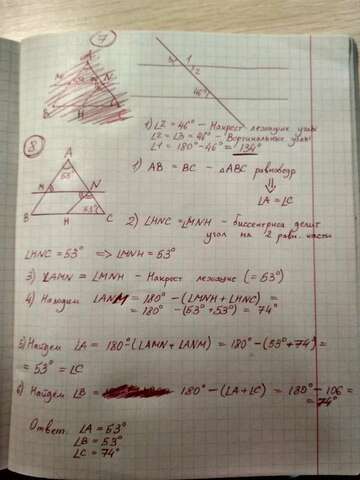 7
A
M
N
B
H
C
1
3
2
46°
1) ∠2 = 46° – Накрест лежащие углы
∠2 = ∠3 = 46° – Вертикальные углы
∠1 = 180° – 46° = 134°
8
A
53°
M
N
B
H
53°
C
1) AB = BC – △ABC равнобедр
⇓
∠A = ∠C
2) ∠HNC = ∠MNH – биссектриса делит
угол на 2 равн. части
∠HNC = 53° => ∠MNH = 53°
3) ∠AMN = ∠MNH – Накрест лежащие (= 53°)
4) Находим ∠ANM = 180° – (∠MNH + ∠HNC) =
= 180° – (53° + 53°) = 74°
5) Найдем ∠A = 180° (∠AMN + ∠ANM) = 180° – (53° + 74°) =
= 53° = ∠C
6) Найдем ∠B = 180° – (∠A + ∠C) = 180° – 106 =
= 74°
Ответ. ∠A = 53°
∠B = 53°
∠C = 74°